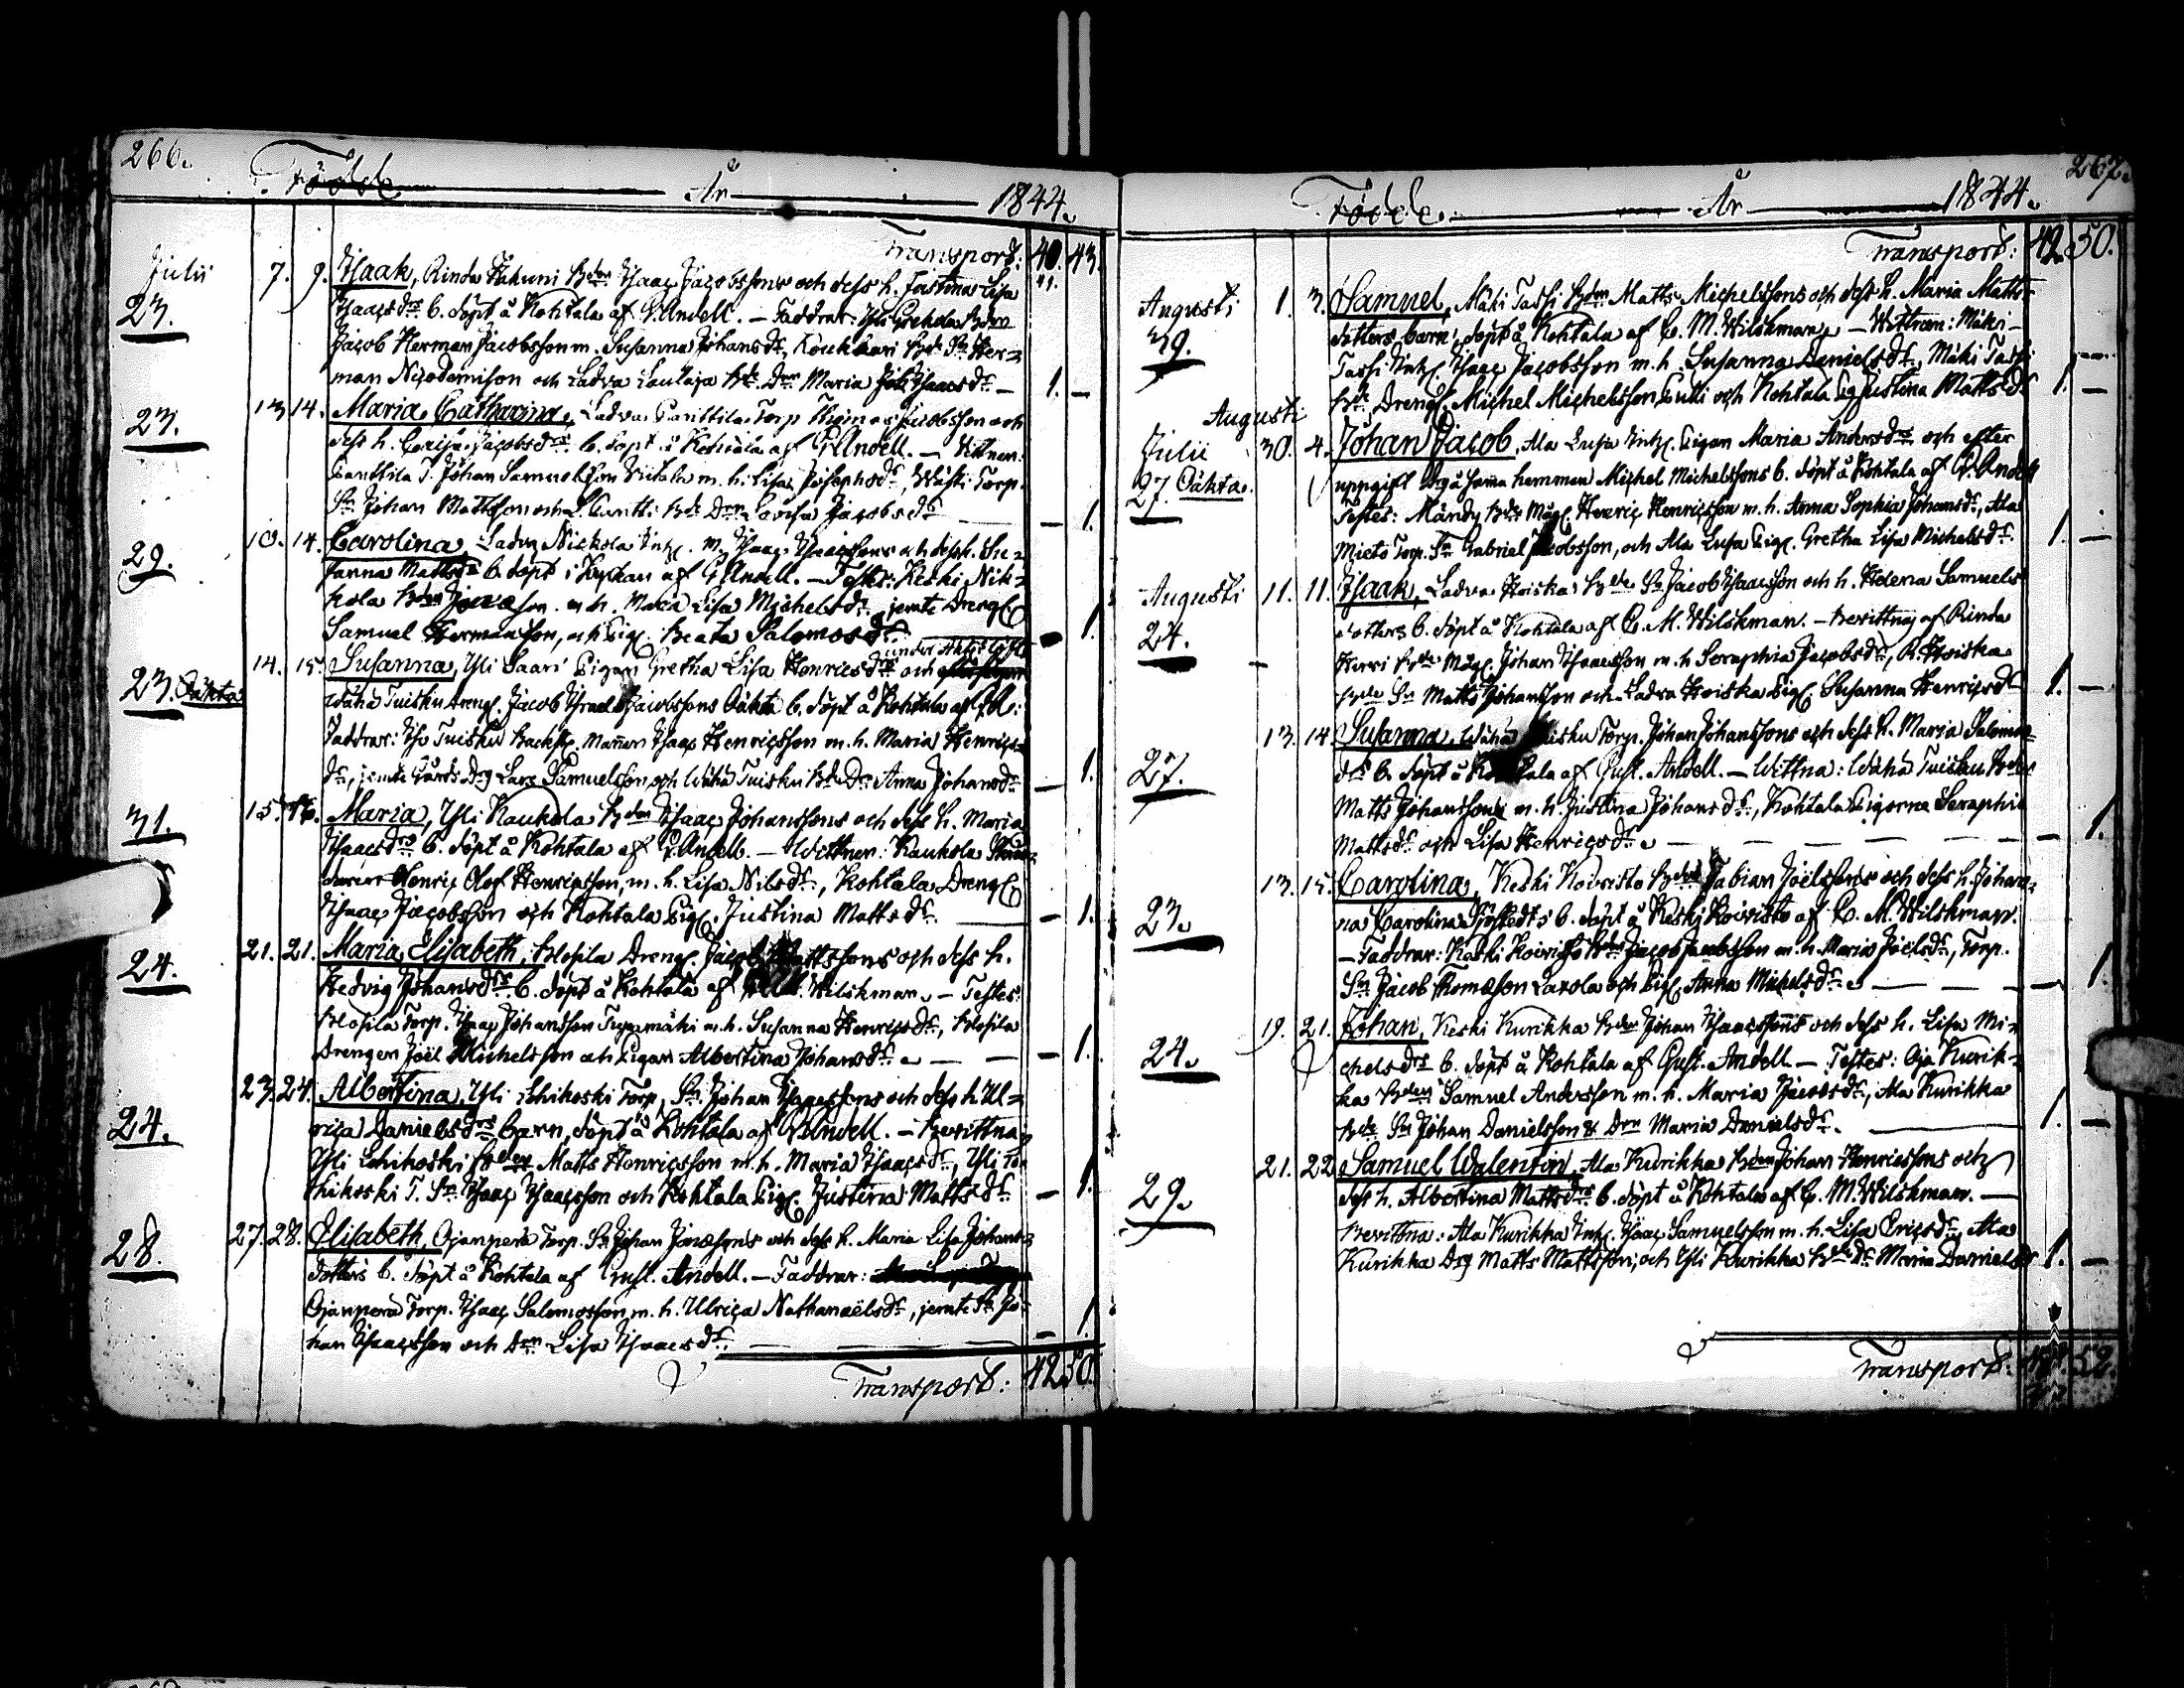 266.
Födde År 1844.
Transport: 40. 43.
Julii 7. 9. Isaak, Rinda Hakuni Bdon Isaac Jacobssons och dess h. Justina Lisa
23. Isaacsdrs b. döpt å Kohtala af G. Andell. — Faddrar: Yli Grekola Bdon
Jacob Herman Jacobsson m. h. Susanna Johansdr, Koukkari Bde Sn Her-
man Nicodemison och Ladva Laulaja Bde Drn Maria Isaacsdr — 1. —
23. 13. 14. Maria Catharina, Ladva Canttila Torp. Thomas Jacobsson och
dess h. Caisa Jacobsdrs b. döpt å Kohtala af G. Andell. — Vittnen:
Canttila T. Johan Samuelsson Viitala m. h. Lisa Josephsdr, Torp.
Sn Johan Mattsson och Bde Drn Lovisa Jacobsdr — 1.
29. 10. 14. Carolina, Ladva Nickola Inh. M. Isaac Isaacssons och dess h. Su-
sanna Mattsdrs b. döpt i Kyrkan af G. Andell. — Testes: Keski Nik-
kola Bdon Jonæson m. h. Maria Lisa Michelsdr jemte Dreng.
Samuel Hermansson, och Pig. Beata Salomosdr. 1.
23. Oäkta 14. 15. Susanna, Yli Saari Pigan Gretha Lisa Henricsdrs och
Wähä Tuisku Dreng. Jacob Israel Jacobssons Oäkta b. döpt å Kohtala af G. A:
Faddrar: Iso Tuisku Backst. Mannen Isaac Henricsson m. h. Maria Henrics-
dr, jemte Gårds Drg Lars Samuelsson, och Wähä Tuisku Bde Dr Anna Johansdr — 1.
31. 15. 16. Maria, Yli Kaukola Bdon Isaac Johanssons och dess h. Maria
Isaacsdrs b. döpt å Kohtala af G. Andell. — Wittnen: Kaukola
Henric Olof Henricsson, m. h. Lisa Nilsdr, Kohtala Dreng.
Isaac Jacobsson och Kohtala Pig. Justina Mattsdr. — 1.
24. 21. 21. Maria Elisabeth, Klopila Dreng. Jacob Mattssons och dess h.
Hedvig Johansdrs b. döpt å Kohtala af Wilskman. — Testes:
Klopila Torp. Isaac Johansson m. h. Susanna Henricsdr, Klopila
Drengen Joël Michelsson och Pigan Albertina Johansdr. — 1.
24. 23. 24. Albertina, Yli Lehikoski Torp. Sn. Johan Isaacssons och dess h. Ul-
rica Danielsdrs barn, döpt å Kohtala af G. Andell. — Bevittna:
Yli Lehikoski Bdon Matts Henricsson m. h. Maria Isaacsdr, Yli Le-
hikoski T. Sn Isaac Isaacsson och Kohtala Pig. Justina Mattsdr. — 1.
28. 27. 28. Elisabeth, Ojanperä Torp. Sn Johan Jonæsons och dess h. Maria Lisa Johans-
dotters b. döpt å Kohtala af Gust. Andell. — Faddrar:
Ojanperä Torp. Isaac Salomosson m. h. Ulrica Nathanaëlsdr, jemte Sn Jo-
han Isaacsson och Drn Lisa Isaacsdr. — 1.
Transport: 42. 50.
267.
Födde År 1844.
Transport: 42. 50.
Augusti 1. 3. Samuel, Mäki Tassi Bdon Matts Michelssons och dess h. Maria Matts-
dotters barn, döpt å Kohtala af C. M. Wilskman. — Wittnen: Mäki-
Tassi Inh. Isaac Jacobsson m. h. Susanna Danielsdr, Mäki Tassi
Bde Dreng. Michel Michelsson och Kohtala Pig Justina Mattsdr 1. —
Augusti
Julii 30. 4. Johan Jacob, Ala Luja Inh. Pigan Maria Andersdrs och efter
27. Oäkta. uppgift Drg å samma hemman Michel Michelssons b. döpt å Kohtala af G. Andell
Testes: Mändy Bde Måg. Henric Henricsson m. h. Anna Sophia Johansdr, Ala
Mieto Torp. Sn Gabriel Jacobsson, och Ala Luja Pig. Gretha Lisa Michelsdr. 1. —
Augusti 11. 11. Isaak, Ladva Hoiska Bde Sn Jacob Isaacsson och h. Helena Samuels
24. dotters b. döpt å Kohtala af C. M. Wilskman. — Bevittnas af Rinda
Kerri Bde Måg. Johan Isaacsson m. h. Seraphia Jacobsdr, R. Hoiska
Bde Sn Matts Johansson och Ladva Hoiska Pig. Susanna Henricsdr 1. —
27. 13. 14 Susanna, Wähä Tuisku Torp. Johan Johanssons och dess h. Maria Salomos-
drs b. döpt å Kohtala af Gust. Andell. — Wittna: Wähä Tuisku Bdon
Matts Johansson m. h. Justina Johansdr, Kohtala Pigorna Seraphia
Mattsdr och Lisa Henricsdr. — 1.
23. 13. 15. Carolina, Keski Koivisto Bdon Fabian Joëlssons och dess h. Johan-
na Carolina b. döpt å Keski Koivisto af C. M. Wilskman.
— Faddrar: Keski Koivisto Bdon Jacob Jacobsson m. h. Maria Joëlsdr, Torp.
Sn Jacob Thomæson Laxola och Pig. Anna Michelsdr. — 1.
24. 19. 21. Johan, Keski Kurikka Bdon Johan Isaacssons och dess h. Lisa Mi-
chelsdrs b. döpt å Kohtala af Gust. Andell. — Testes: Oja Kurik-
ka Bdon Samuel Andersson m. h. Maria Jacobsdr, Ala Kurikka
Bde Sn Johan Danielsson & Drn Maria Danielsdr. 1. —
29. 21. 22 Samuel Walentin, Ala Kurikka Bdon Johan Henricssons och
dess h. Albertina Mattsdrs b. döpt å Kohtala af C. M. Wilskman. —
Bevittna: Ala Kurikka Inh. Isaac Samuelsson m. h. Lisa Ericsdr Ala
Kurikka Drg Matts Mattsson, och Yli Kurikka Bde Dr Maria Danielsdr 1. —
Transport: 52.